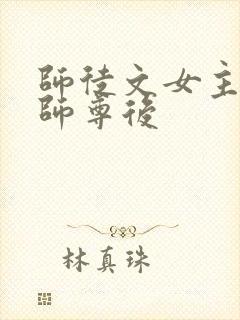 師徒文女主
師尊後
林真珠